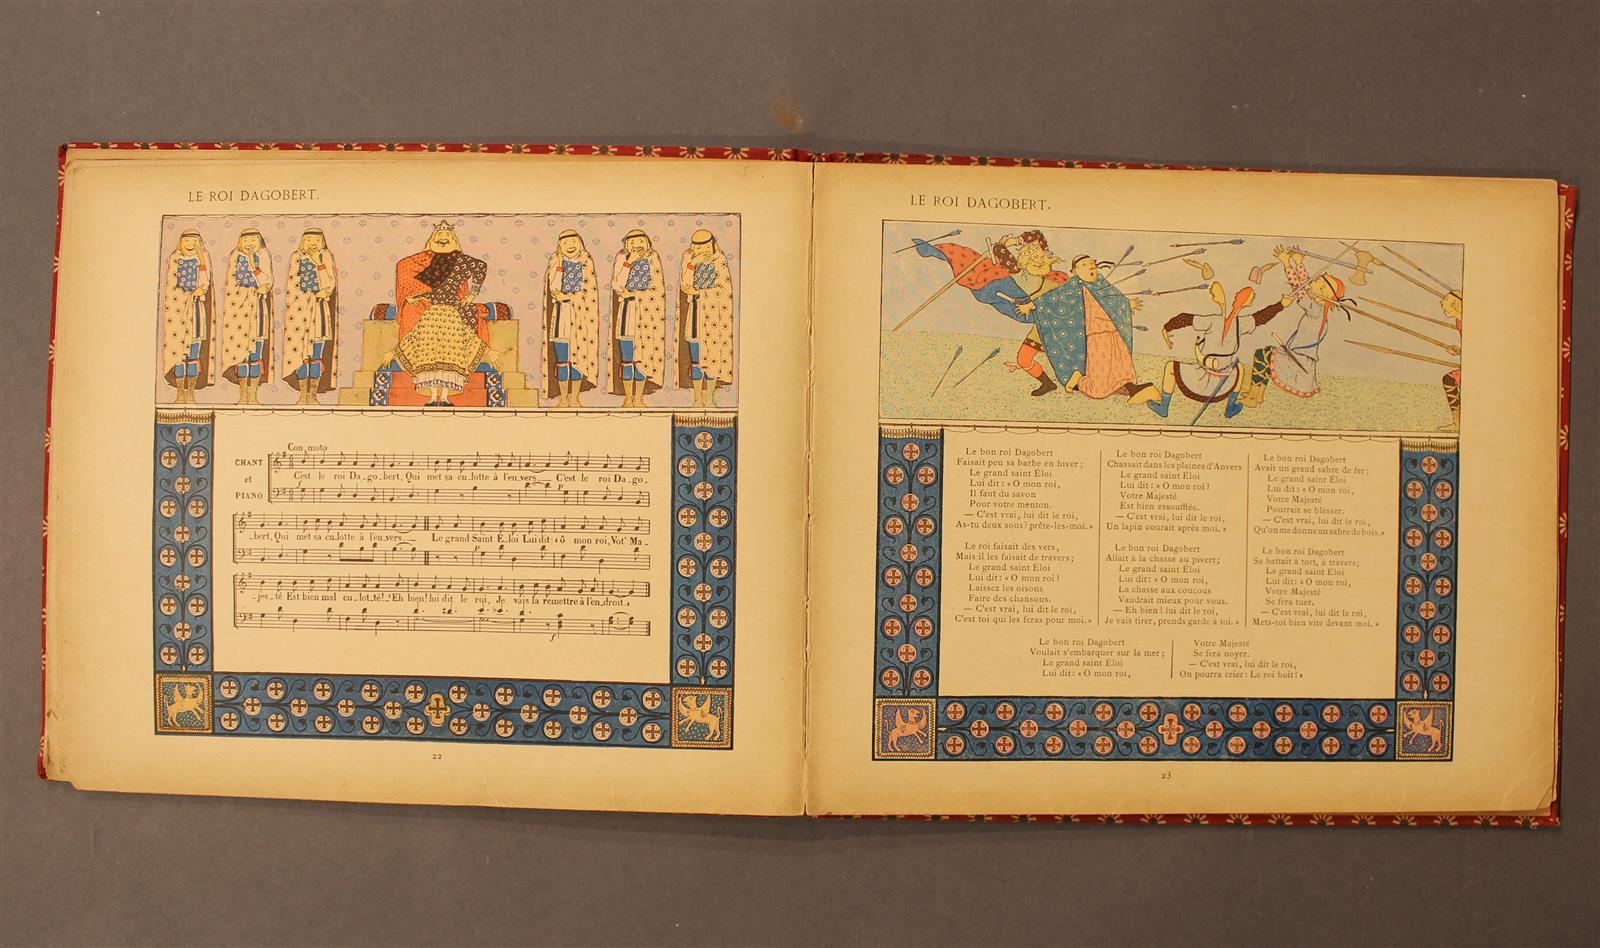 LE ROI DAGOBERT.
Con moto
CHANT
et
PIANO
C'est le roi Da_go_bert, Qui met sa cu_lotte à l'en_vers__ C'est le roi Da_go_
_bert, Qui met sa cu_lotte à l'en_vers.__ Le grand Saint É_loi Lui dit: «ô mon roi, Vot' Ma_
_jes_té Est bien mal cu_lot_té!_ "Eh bien! lui dit le roi, Je vais la remettre à l'en_droit.»
22
LE ROI DAGOBERT.
Le bon roi Dagobert
Faisait peu sa barbe en hiver;
Le grand saint Éloi
Lui dit: « O mon roi,
Il faut du savon
Pour votre menton.
— C'est vrai, lui dit le roi,
As-tu deux sous? prête-les-moi.»
Le roi faisait des vers,
Mais il les faisait de travers;
Le grand saint Éloi
Lui dit: « O mon roi!
Laissez les oisons
Faire des chansons.
— C'est vrai, lui dit le roi,
C'est toi qui les feras pour moi.»
Le bon roi Dagobert
Chassait dans les plaines d'Anvers
Le grand saint Éloi
Lui dit: « O mon roi!
Votre Majesté
Est bien essoufflée.
— C'est vrai, lui dit le roi,
Un lapin courait après moi.»
Le bon roi Dagobert
Allait à la chasse au pivert;
Le grand saint Éloi
Lui dit: « O mon roi,
La chasse aux coucous
Vaudrait mieux pour vous.
— Eh bien! lui dit le roi,
Je vais tirer, prends garde à toi.»
Le bon roi Dagobert
Avait un grand sabre de fer;
Le grand saint Éloi
Lui dit: « O mon roi,
Votre Majesté
Pourrait se blesser.
— C'est vrai, lui dit le roi,
Qu'on me donne un sabre de bois.»
Le bon roi Dagobert
Se battait à tort, à travers;
Le grand saint Éloi
Lui dit: « O mon roi,
Votre Majesté
Se fera tuer.
— C'est vrai, lui dit le roi,
Mets-toi bien vite devant moi.»
Le bon roi Dagobert
Voulait s'embarquer sur la mer;
Le grand saint Éloi
Lui dit: « O mon roi,
Votre Majesté
Se fera noyer.
— C'est vrai, lui dit le roi,
On pourra crier: Le roi boit!»
23